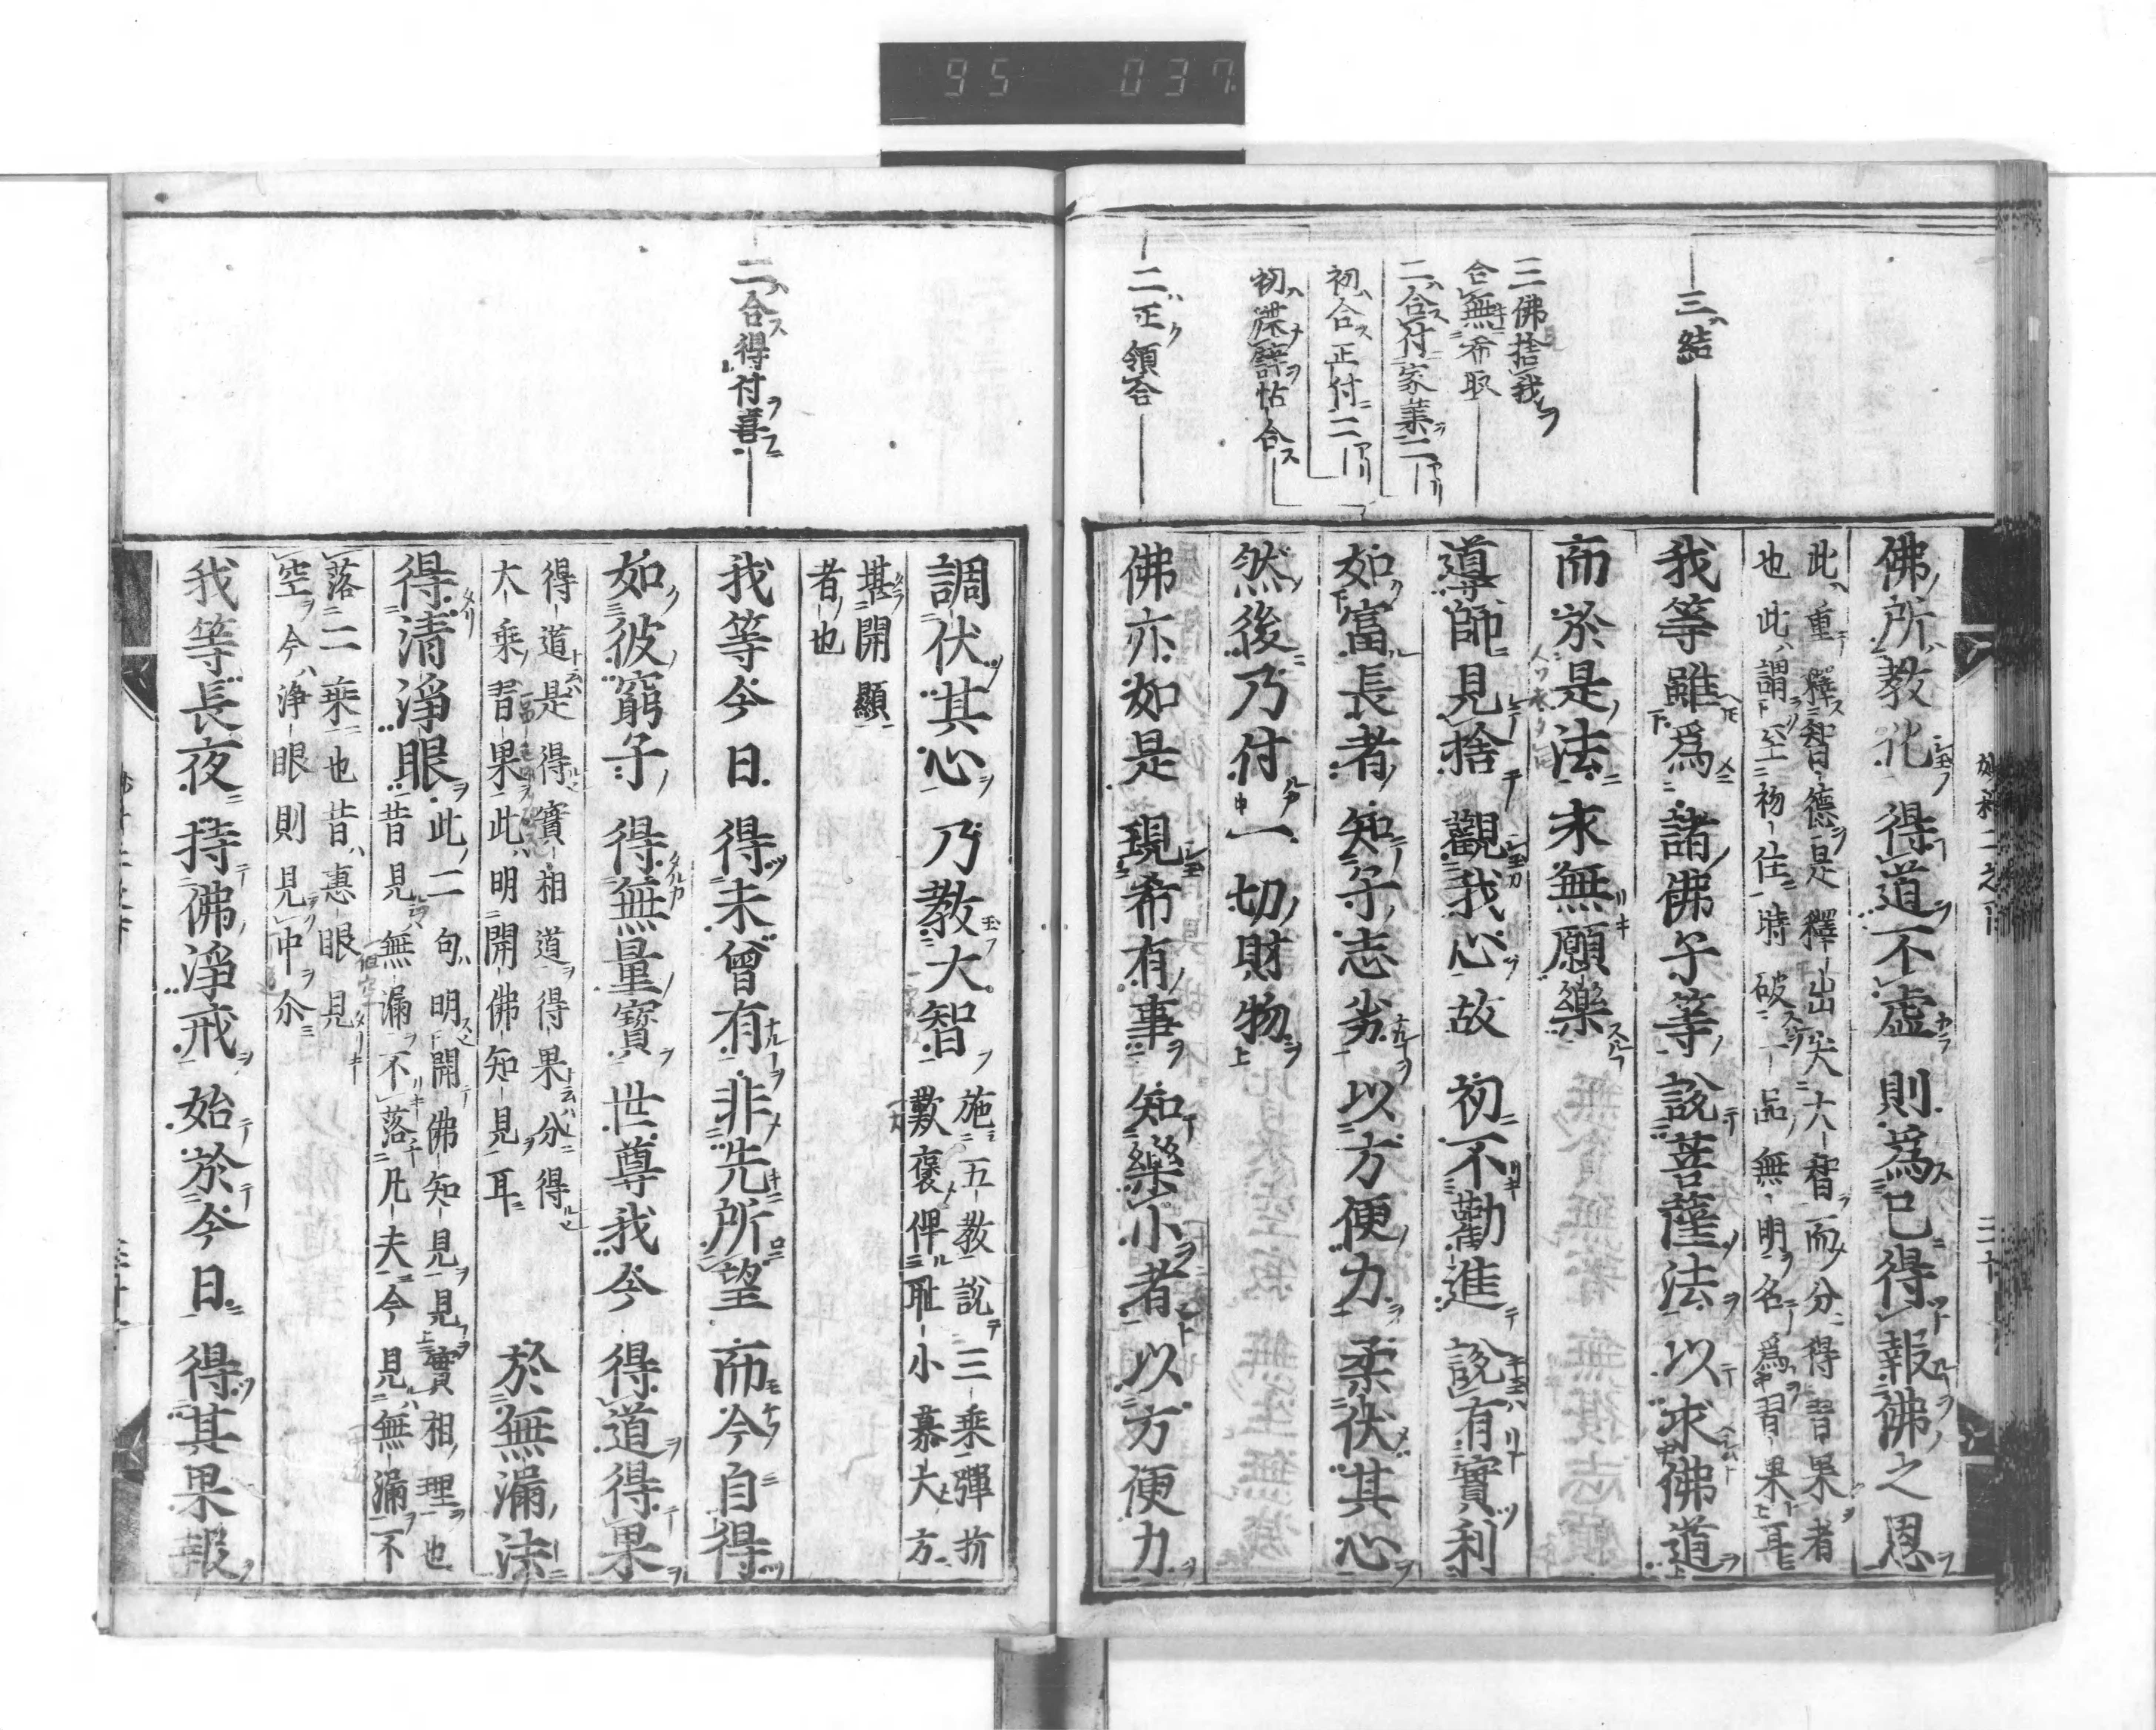 95 037
三結
三佛捨我
合無希取
二合付家業二
初合正付二
初牒譬帖合
二正領合
佛所教化 得道不虛 則爲已得 報佛之恩
此重釋智德是釋出尖大智而分得習果者
也此謂至初住時破一品無明名爲習果耳
我等雖爲 諸佛子等 說菩薩法 以求佛道
而於是法 永無願樂
導師見捨 觀我心故 初不勸進 說有實利
如富長者 知子志劣 以方便力 柔伏其心
然後乃付 一切財物
佛亦如是 現希有事 知樂小者 以方便力
二合得付喜
調伏其心 乃教大智
施五教說三乘彈折
歎褒俾耻小慕大方
堪開顯
者也
我等今日 得未曾有 非先所望 而今自得
如彼窮子 得無量寶 世尊我今 得道得果
得道是得實相道得果分得
大乘習果此明開佛知見耳
於無漏法
得清淨眼
此二句明開佛知見見實相理也
昔見無漏不落凡夫今見無漏不
落二乘也昔惠眼見
空今淨眼則見中介
我等長夜 持佛淨戒 始於今日 得其果報